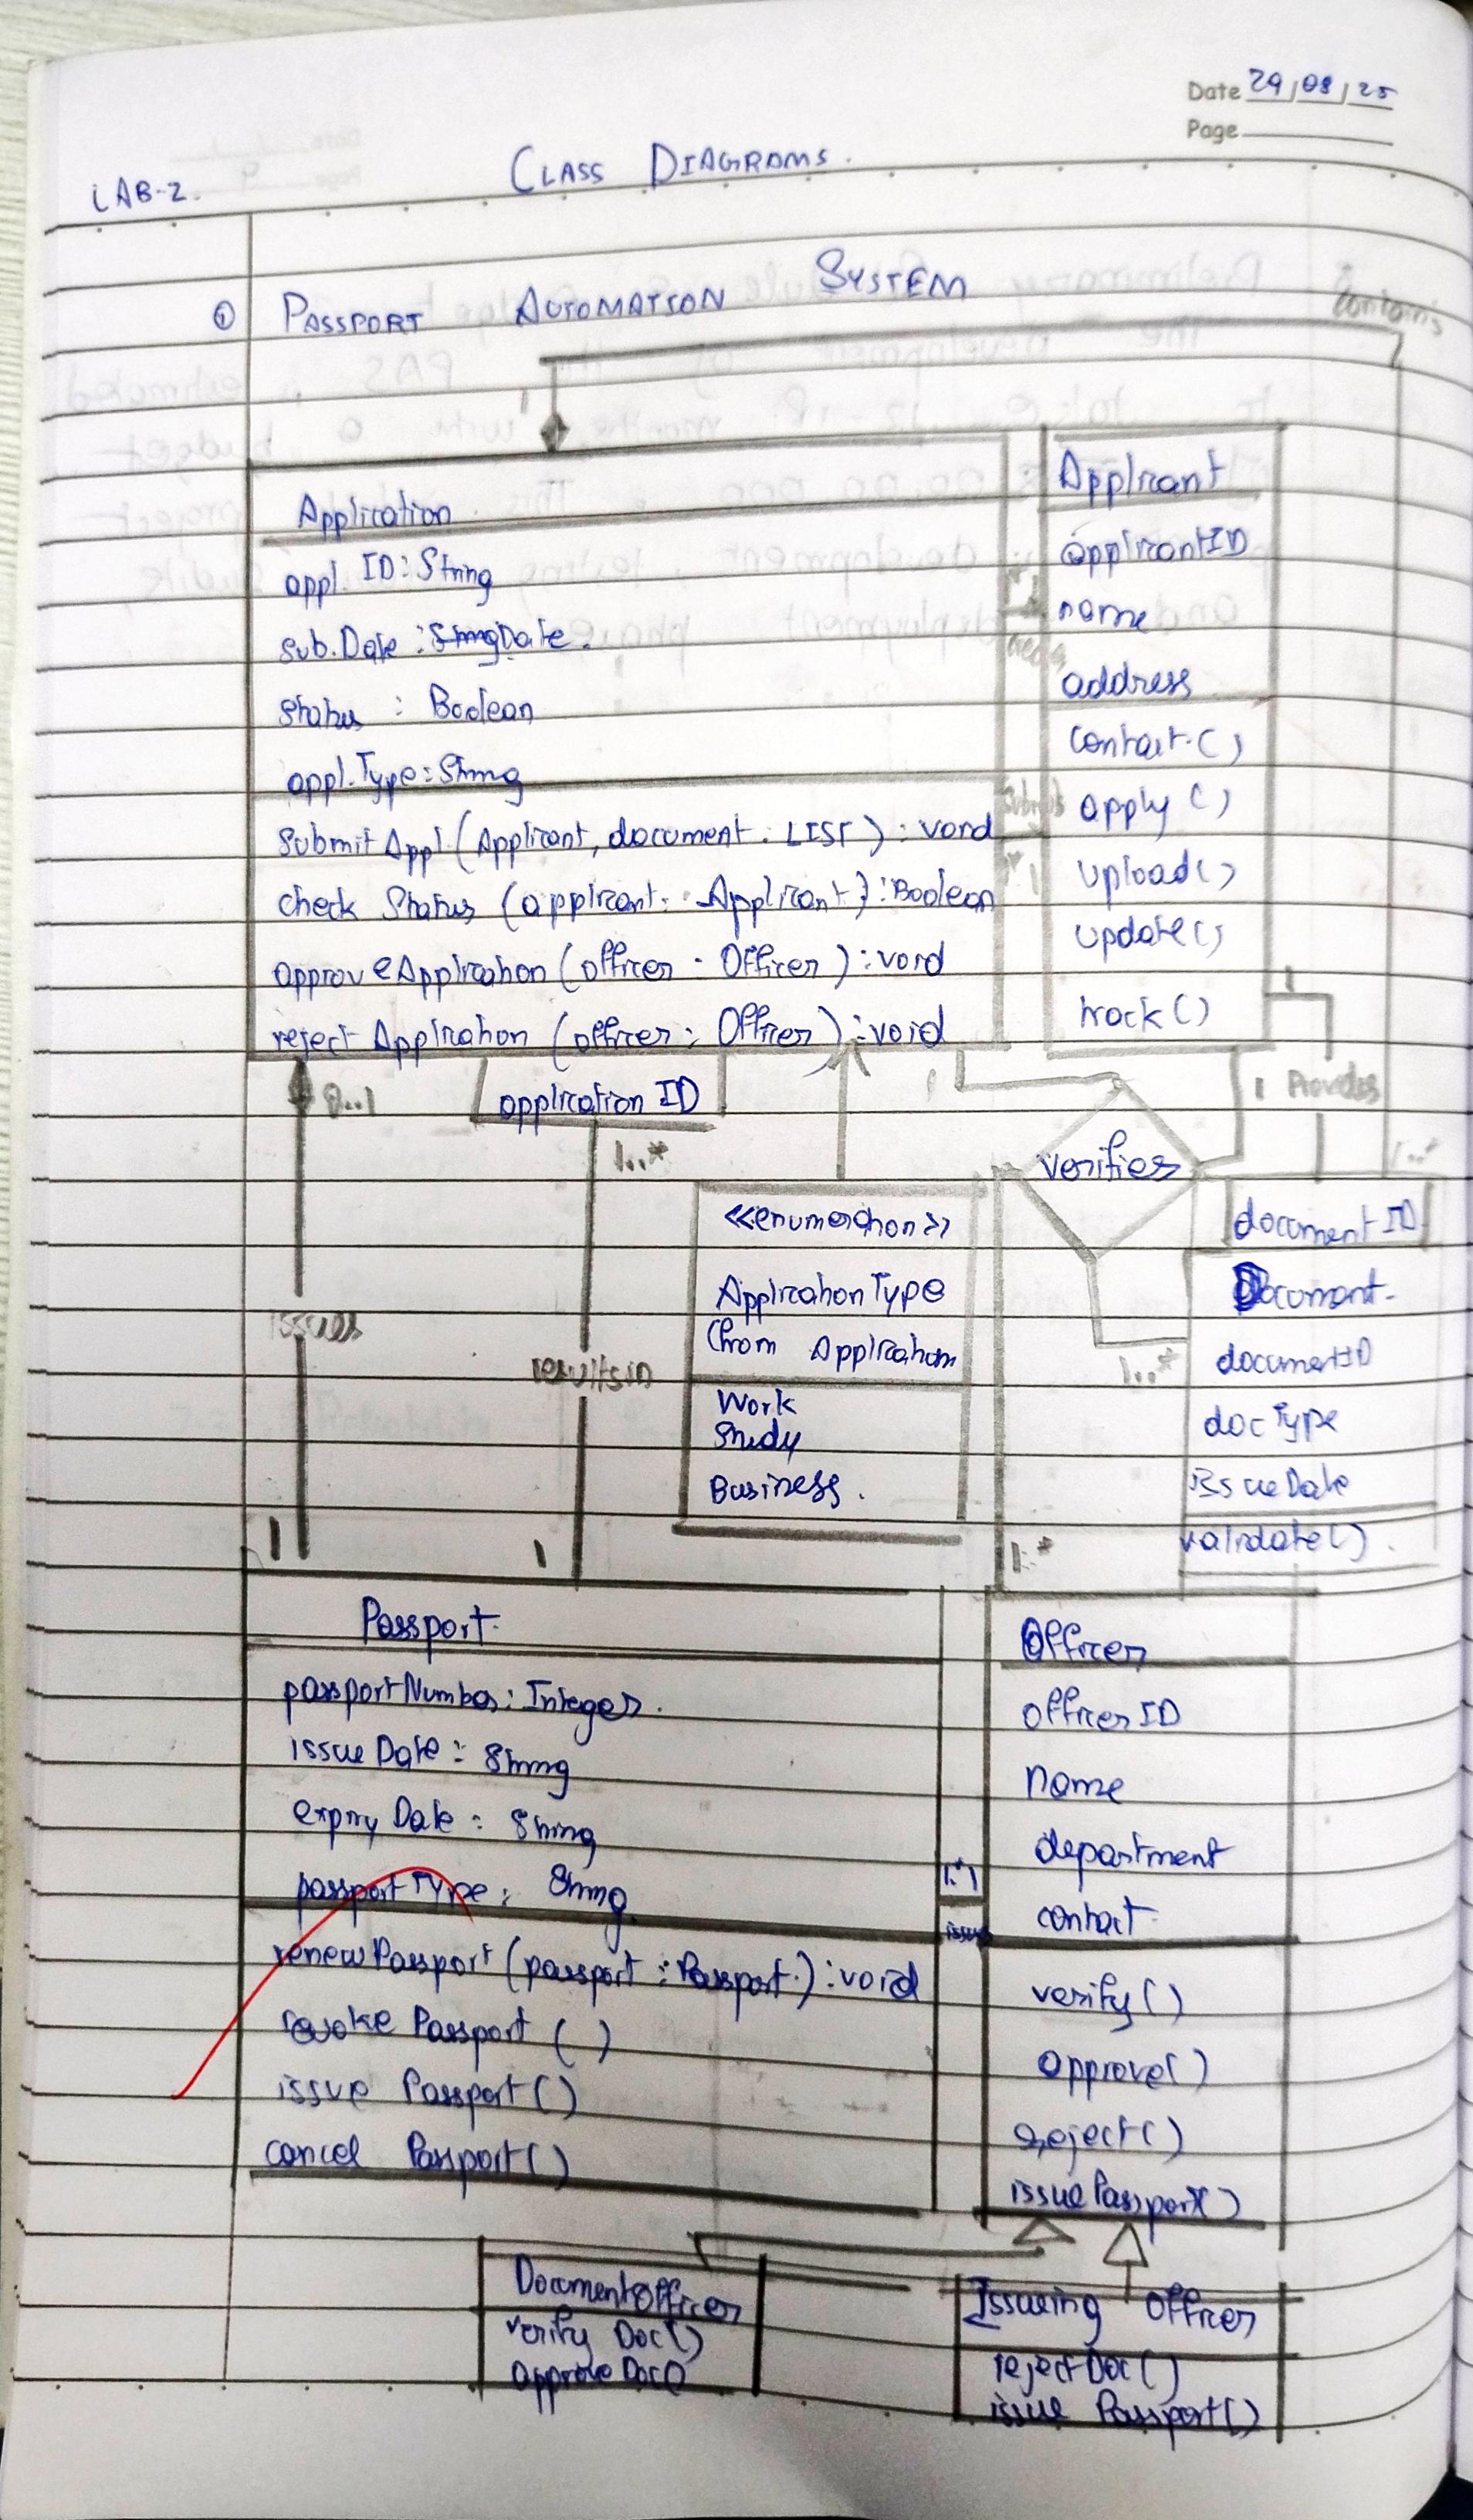 Date 29/08/25
Page
LAB-2.
CLASS DIAGRAMS.
① PASSPORT AUTOMATION SYSTEM
contains
1
Application
appl. ID: String
sub.Date : Date.
status : Boolean
appl.Type: String
submit Appl (Applicant, document : LIST) : void
check Status (applicant: Applicant) : Boolean
approve Application (officer : Officer) : void
reject Application (officer : Officer) : void
Applicant
applicantID
name
address
contact ( )
apply ( )
upload ( )
update ( )
track ( )
submits
0..1
application ID
1..*
1
verifies
1 Provides
1..*
<<enumeration>>
Application Type
(from Application
Work
Study
Business.
document ID
Document
documentID
doc Type
issue Date
validate ( ).
1..*
issues
results in
1
1
1..*
Passport
passport Number: Integer.
issue Date : String
expiry Date : String
passport Type : String
renew Passport (passport : Passport) : void
revoke Passport ( )
issue Passport ( )
cancel Passport ( )
issue
Officer
officer ID
name
department
contact
verify ( )
approve ( )
reject ( )
issue Passport ( )
Document Officer
verify Doc ( )
approve Doc ( )
Issuing Officer
reject Doc ( )
issue Passport ( )